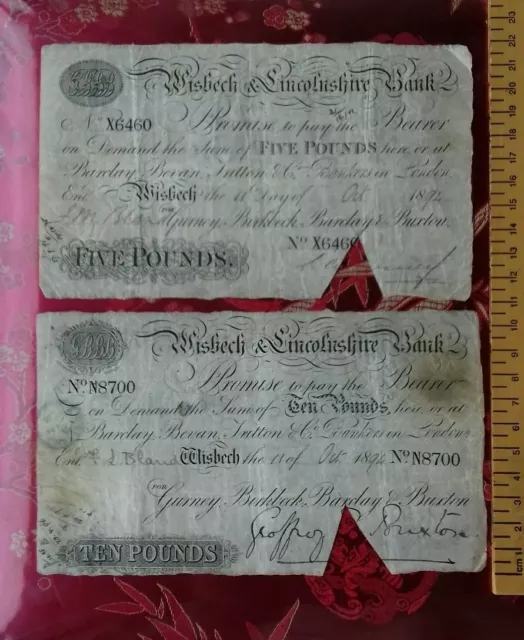 Wisbech & Lincolnshire Bank
No X6460 Promise to pay the Bearer
on Demand the Sum of FIVE POUNDS here or at
Barclay, Bevan, Tritton & Co. Bankers in London
Entd. Wisbech the Day of Oct 1894
For Gurney, Birkbeck, Barclay & Buxton.
No X6460
FIVE POUNDS.
Wisbech & Lincolnshire Bank
No N8700 Promise to pay the Bearer
on Demand the Sum of Ten Pounds, here or at
Barclay, Bevan, Tritton & Co. Bankers in London
Entd. Bland Wisbech the 11 of Oct. 1894 No N8700
For Gurney Birkbeck, Barclay & Buxton
Geoffrey Buxton
TEN POUNDS
1 cm 2 3 4 5 6 7 8 9 10 11 12 13 14 15 16 17 18 19 20 21 22 23